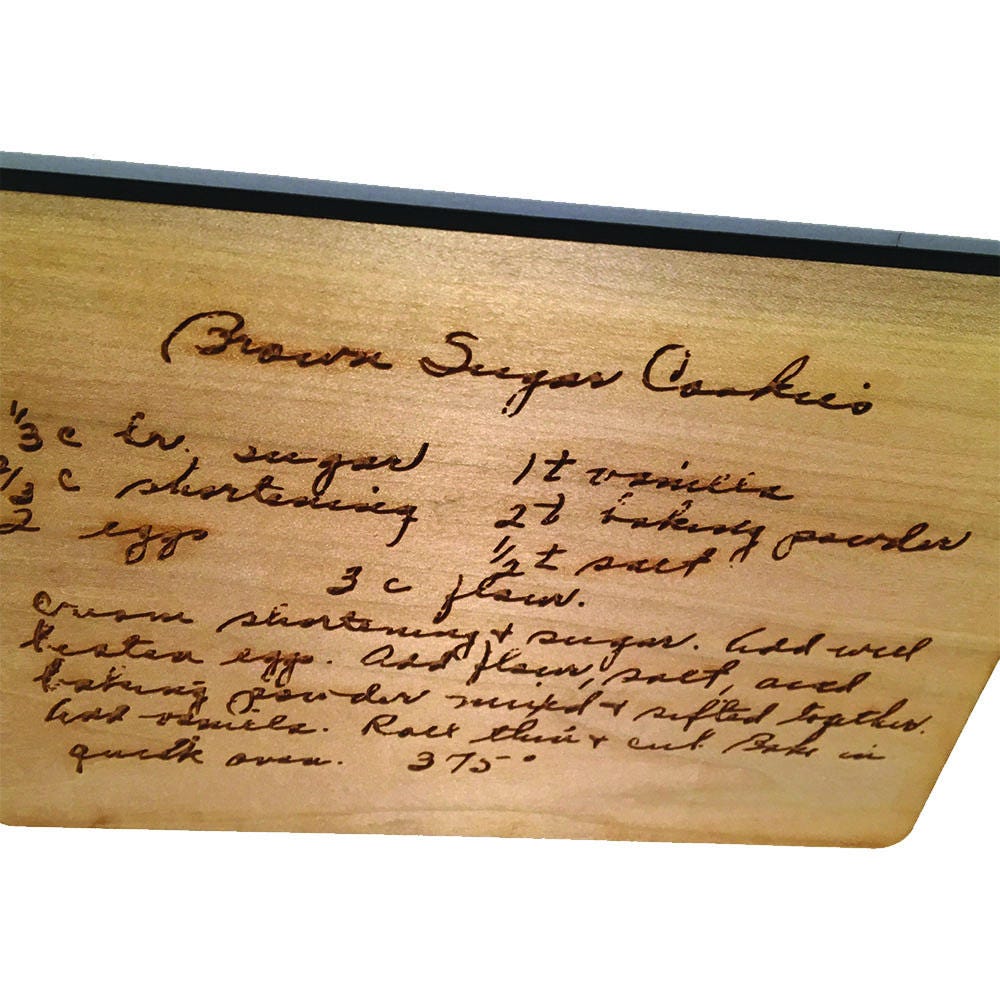 Brown Sugar Cookies
1/3 c br. sugar 1t vanilla
2/3 c shortening 2t baking powder
2 eggs 1/2 t salt
3 c flour.
Cream shortening + sugar. Add well
beaten eggs. Add flour, salt, and
baking powder mixed + sifted together.
Add vanilla. Roll thin + cut. Bake in
quick oven. 375°